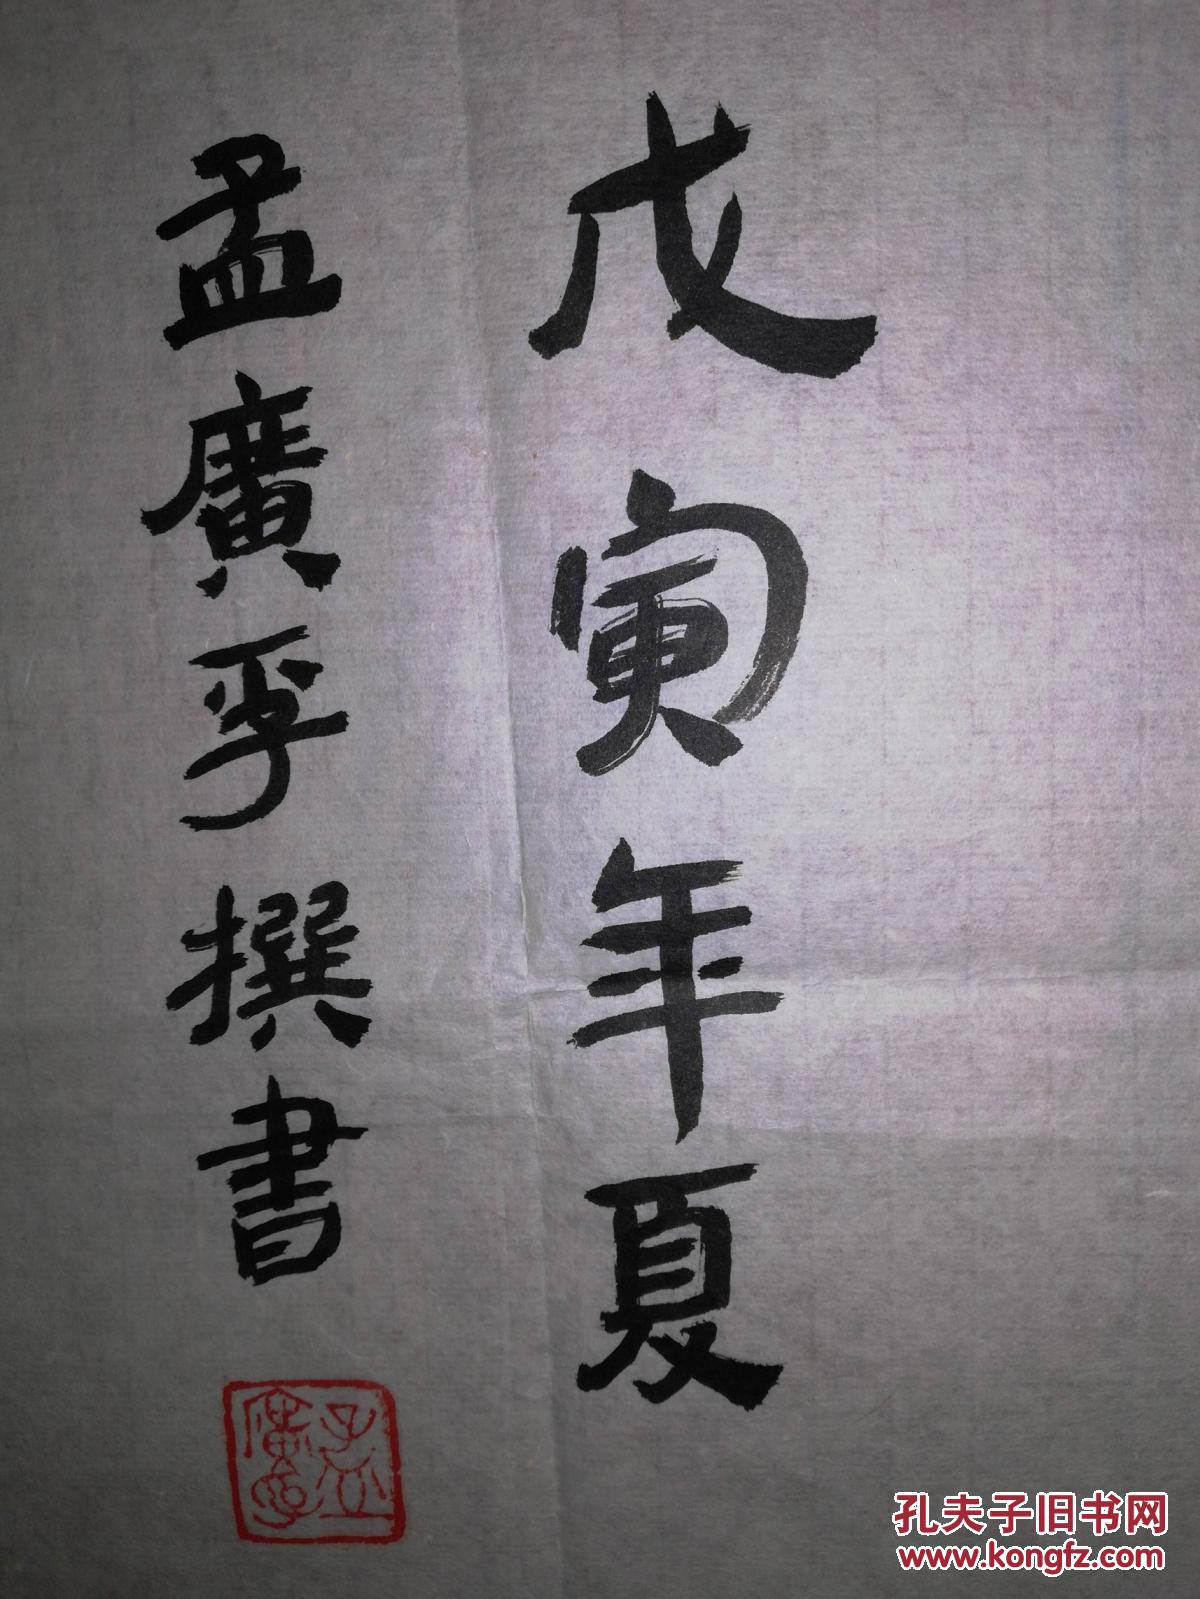 戊寅年夏
孟廣孚撰書
孔夫子旧书网
www.kongfz.com